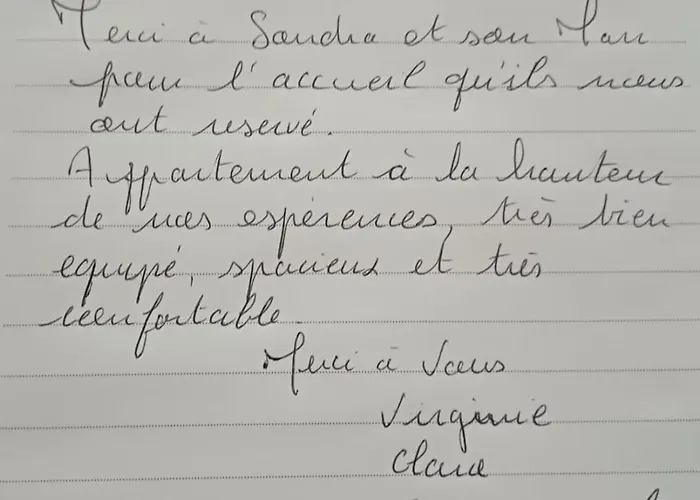 Merci à Sandra et son Mari
pour l'accueil qu'ils nous
ont reservé.
Appartement à la hauteur
de nos espérences, très bien
equipé, spacieux et très
confortable.
Merci à Vous
Virginie
Claire